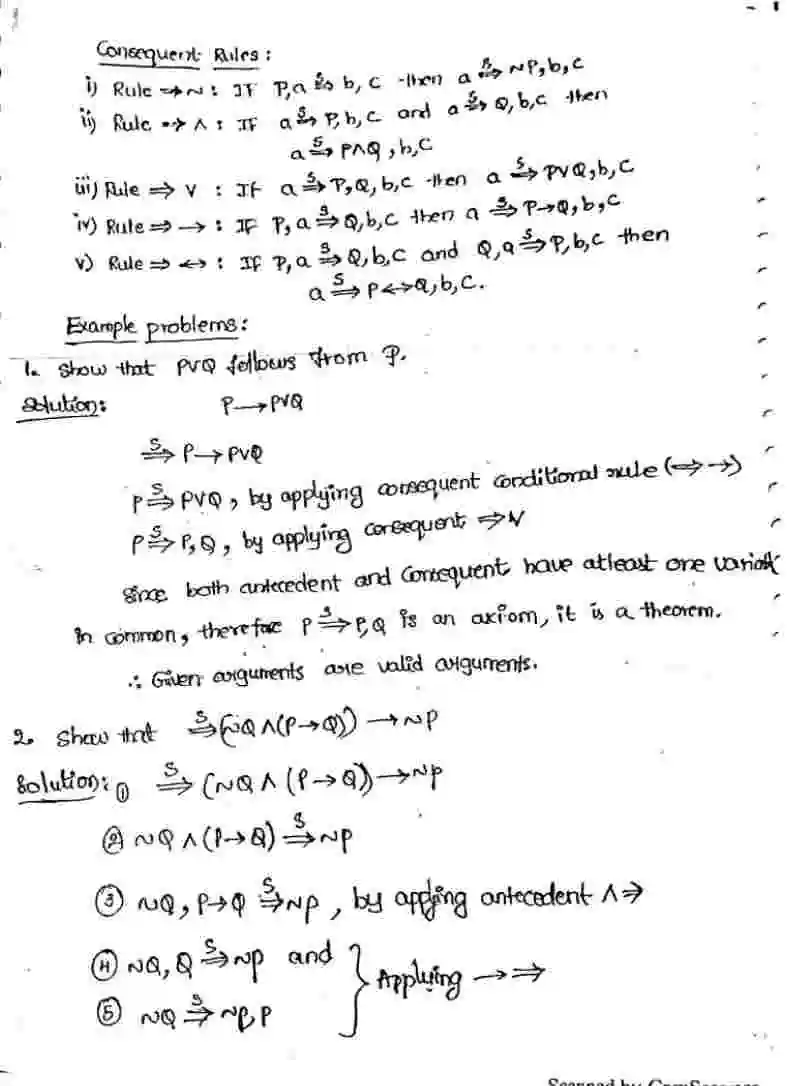 Consequent Rules:
i) Rule ⇒ ~ : If P, a ⇒ˢ b, c then a ⇒ˢ ~P, b, c
ii) Rule ⇒ ∧ : If a ⇒ˢ P, b, c and a ⇒ˢ Q, b, c then
a ⇒ˢ P∧Q, b, c
iii) Rule ⇒ ∨ : If a ⇒ˢ P, Q, b, c then a ⇒ˢ P∨Q, b, c
iv) Rule ⇒ → : If P, a ⇒ˢ Q, b, c then a ⇒ˢ P→Q, b, c
v) Rule ⇒ ↔ : If P, a ⇒ˢ Q, b, c and Q, a ⇒ˢ P, b, c then
a ⇒ˢ P↔Q, b, c.
Example problems:
1. Show that P∨Q follows from P.
Solution: P → P∨Q
⇒ˢ P → P∨Q
P ⇒ˢ P∨Q, by applying consequent conditional rule (⇒→)
P ⇒ˢ P, Q, by applying consequent ⇒∨
Since both antecedent and consequent have atleast one variable
in common, therefore P ⇒ˢ P, Q is an axiom, it is a theorem.
∴ Given arguments are valid arguments.
2. Show that ⇒ˢ (~Q ∧ (P→Q)) → ~P
Solution: ① ⇒ˢ (~Q ∧ (P→Q)) → ~P
② ~Q ∧ (P→Q) ⇒ˢ ~P
③ ~Q, P→Q ⇒ˢ ~P, by applying antecedent ∧⇒
④ ~Q, Q ⇒ˢ ~P and } Applying → ⇒
⑤ ~Q ⇒ˢ ~P, P